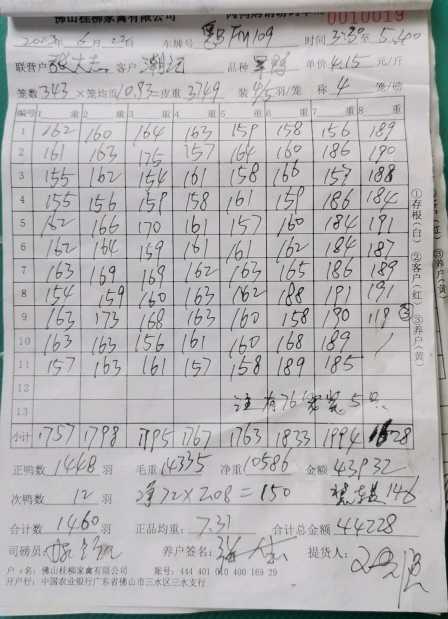 佛山桂柳家禽有限公司 0010019
2023年6月22日 车牌号 粤BFM109 时间 3:30至5:400
联营户 张大志 客户 潮记 品种 单鸭 单价 4.15 元/斤
笼数 343 ×笼均重 10.93 =皮重 3749 装 4/5 羽/笼 称 4 笼/磅
编号 1 重 2 重 3 重 4 重 5 重 6 重 7 重 8 重
1 162 160 164 163 159 158 156 189
2 161 163 175 157 164 160 186 190
3 155 162 154 161 158 166 157 188
4 155 156 159 158 161 159 186 184
5 162 166 170 161 157 160 184 191
6 162 164 159 161 161 162 184 187
7 163 169 169 162 163 165 186 189
8 154 159 160 163 162 188 191 191
9 163 173 168 163 160 158 190 119 ③
10 163 163 156 161 160 168 189
11 157 163 161 157 158 189 185
12
13 注有76笼装5只
小计 1757 1798 1795 1767 1763 1833 1994 1628
正鸭数 1448 羽 毛重 14335 净重 10586 金额 43932
次鸭数 12 羽 净72×2.08=150 146
合计数 1460 羽 正品均重: 7.31 合计总金额 44228
司磅员: 养户签名: 提货人:
户名: 佛山桂柳家禽有限公司 账号: 444 401 010 400 169 29
开户行: 中国农业银行广东省佛山市三水区三水支行
①存根(白) ②客户(红) ③养户(黄)